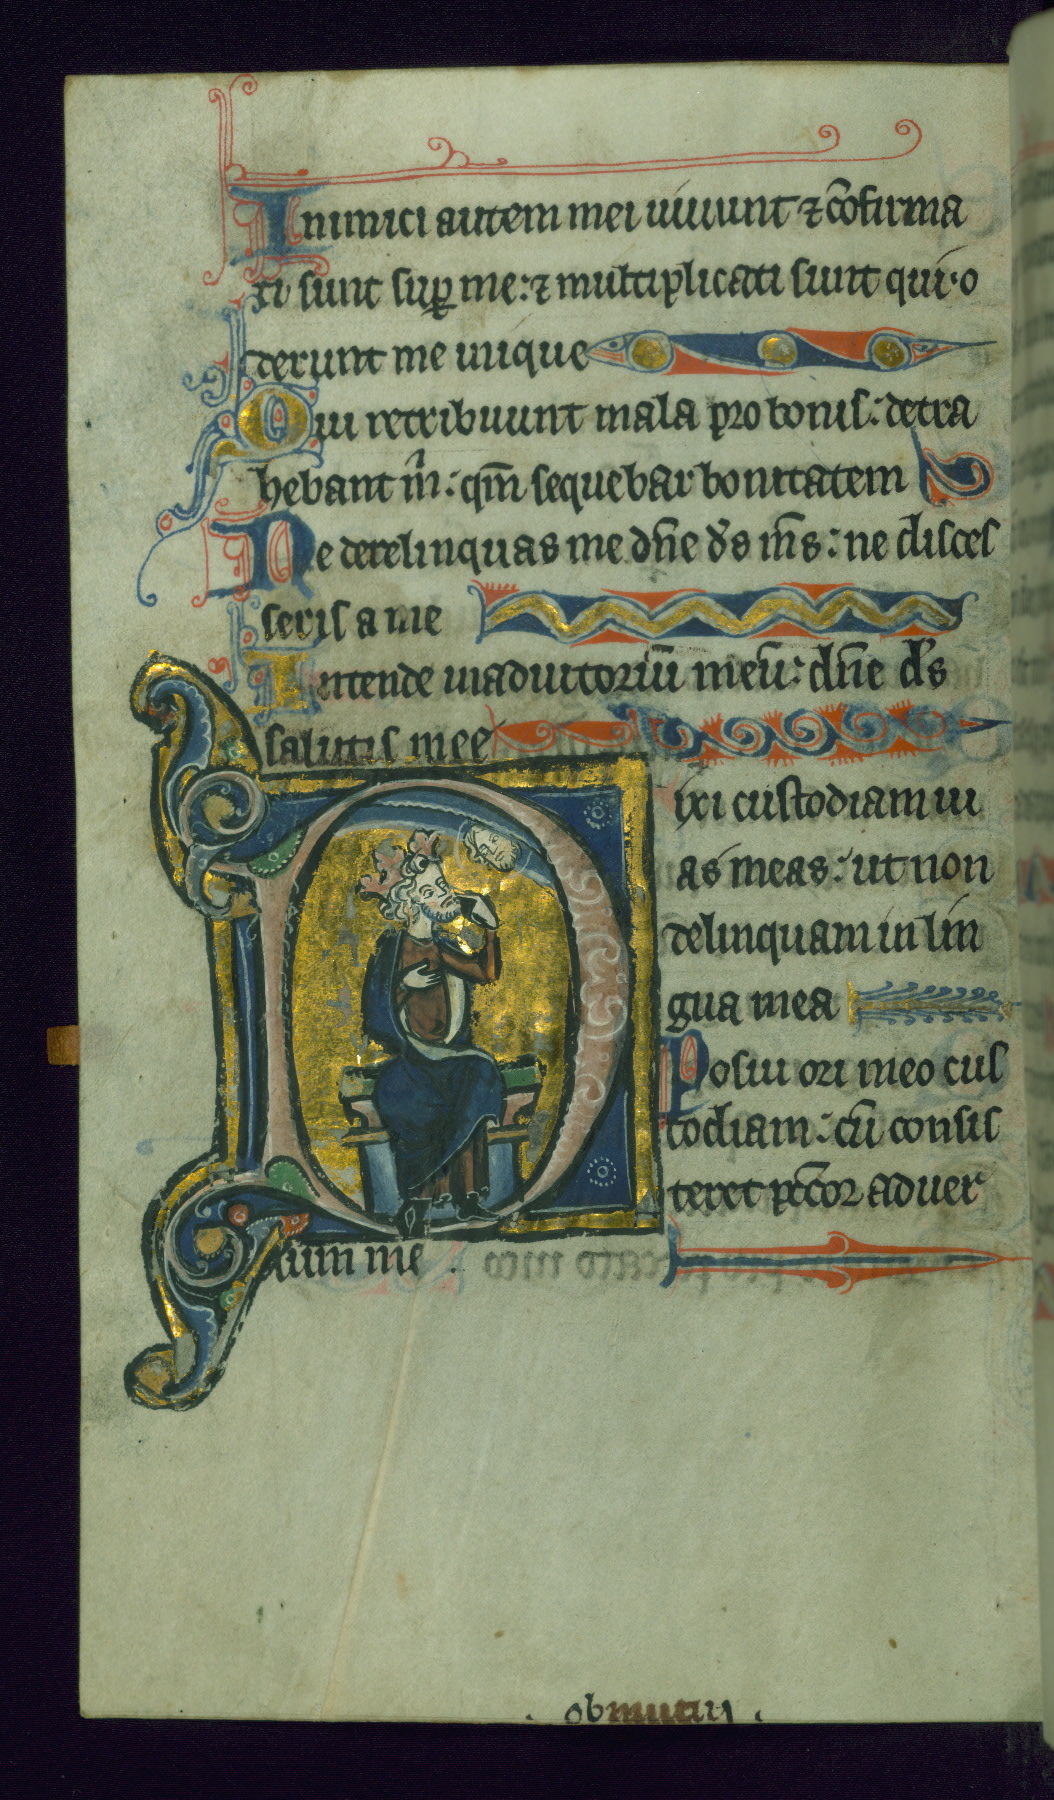 Inimici autem mei uiuunt ⁊ c̄ofirma
ti sunt sup̱ me: ⁊ multiplicati sunt qui o
derunt me inique
Qui retribuunt mala pro bonis: detra
hebant m̄: qm̄ sequebar bonitatem
Ne derelinquas me dn̄e ds̄ ms̄: ne disces
seris a me
Intende inadiutoriū meū: dn̄e ds̄
salutis mee
Dixi custodiam ui
as meas: ut non
delinquam in lin
gua mea
Posui ori meo cus
todiam: cū consis
teret pc̄cor aduer
sum me.
. obmutui .